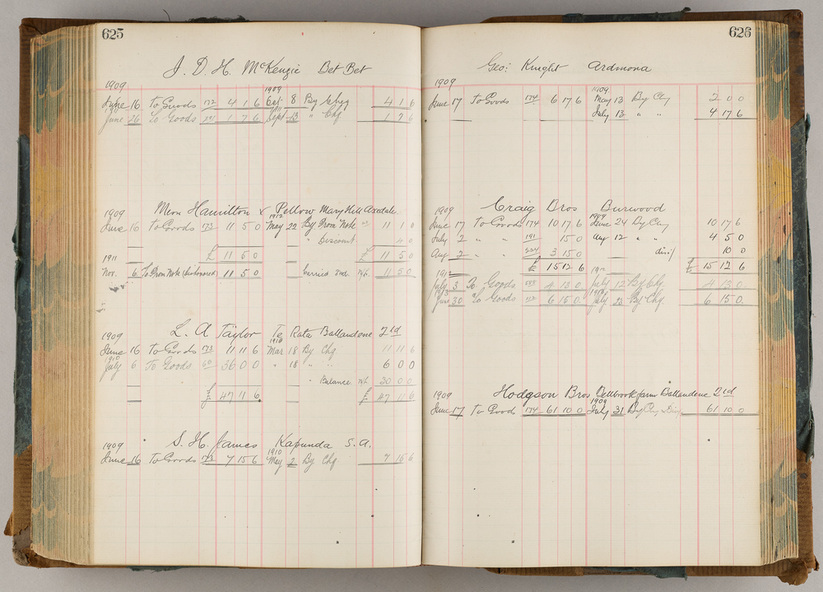 625
J. D. H. McKenzie Bet Bet
1909 1909
June 16 To Goods 172 4 1 6 Oct 8 By Chq 4 1 6
June 16 To Goods 1 7 6 Sept 13 " Chq 1 7 6
1909 Hamilton & Pellow Mary Hill Axedale
1912
June 16 To Goods 173 11 5 0 May 22 By Prom Note 11 1 0
" Discount 4 0
£ 11 5 0 £ 11 5 0
1911
Nov. 6 To Prom Note (dishonored) 11 5 0 carried over 11 5 0
1909 L. A Taylor Te Rata Ballandone 2 rd
1910
June 16 To Goods 173 11 11 6 Mar 18 By Chq 11 11 6
1910
July 6 To Goods 36 0 0 " 18 " " 6 0 0
" Balance 30 0 0
£ 47 11 6 £ 47 11 6
1909 S. H. James Kapunda S. A.
1910
June 16 To Goods 173 7 15 6 May 2 By Chq 7 15 6
626
Geo: Knight Ardmona
1909 1909
June 17 To Goods 174 6 17 6 May 13 By Chq 2 0 0
July 13 " " 4 17 6
1909 Craig Bros Burwood
1909
June 17 To Goods 174 10 17 6 June 24 By Chq 10 17 6
July 2 " " 191 15 0 Aug 12 " " 4 5 0
Aug 2 " " 224 3 15 0 10 0
£ 15 12 6 £ 15 12 6
1912
July 3 To Goods 4 13 0 July 12 By Chq 4 13 0
Jun 30 To Goods 6 15 0 July 22 By Chq 6 15 0
1909 Hodgson Bros Ballandene 2 rd
1909
June 17 To Goods 174 61 10 0 July 31 By Chq 61 10 0